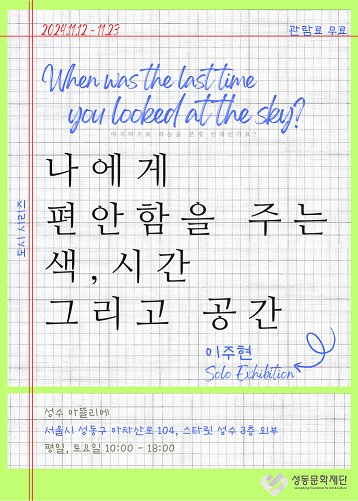 2024.11.12 - 11.23
관람료 무료
When was the last time
you looked at the sky?
마지막으로 하늘을 본게 언제인가요?
도시 시리즈
나에게
편안함을 주는
색, 시간
그리고 공간
이주현
Solo Exhibition
성수 아뜰리에
서울시 성동구 아차산로 104, 스타릿 성수 3층 외부
평일, 토요일 10:00 - 18:00
성동문화재단